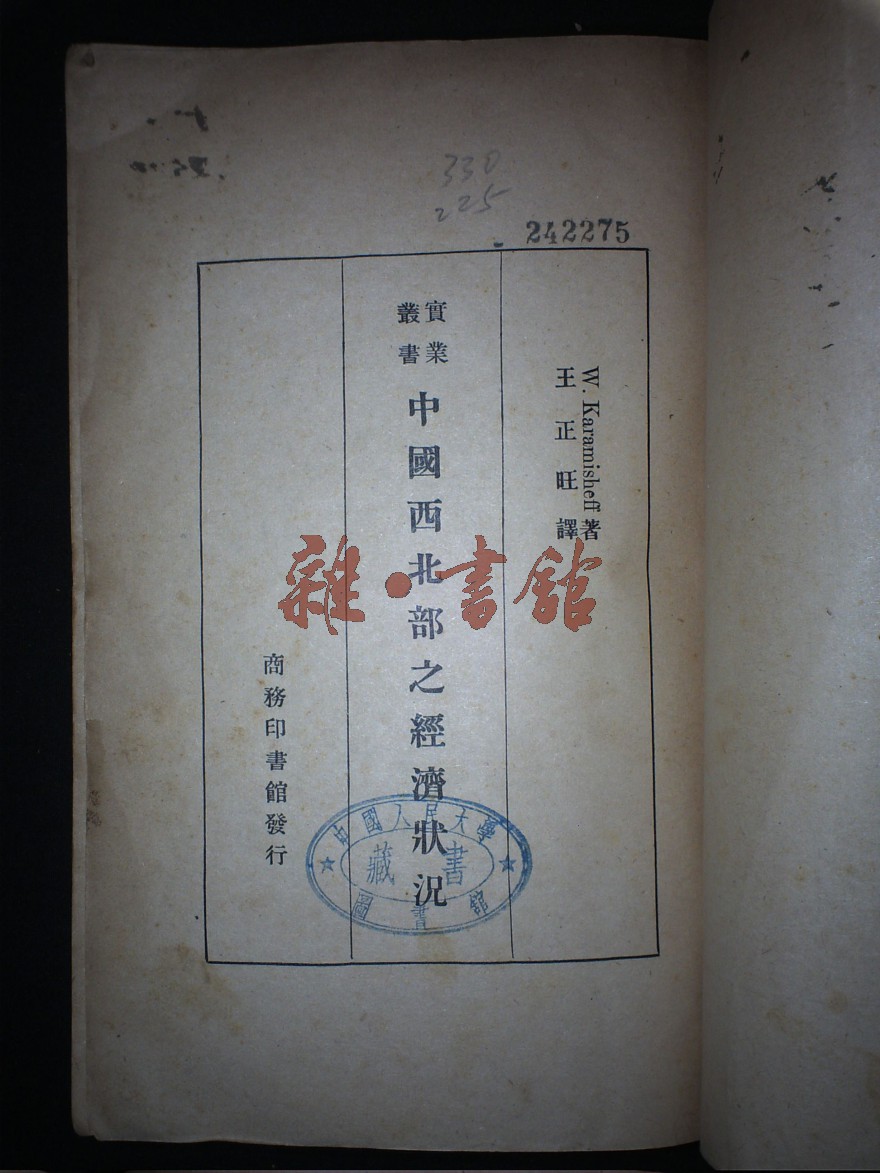 330
225
242275
W. Karamisheff 著
王正旺譯
實業
叢書
中國西北部之經濟狀況
商務印書館發行
雜·書館
中國人民大學
藏書
圖書館